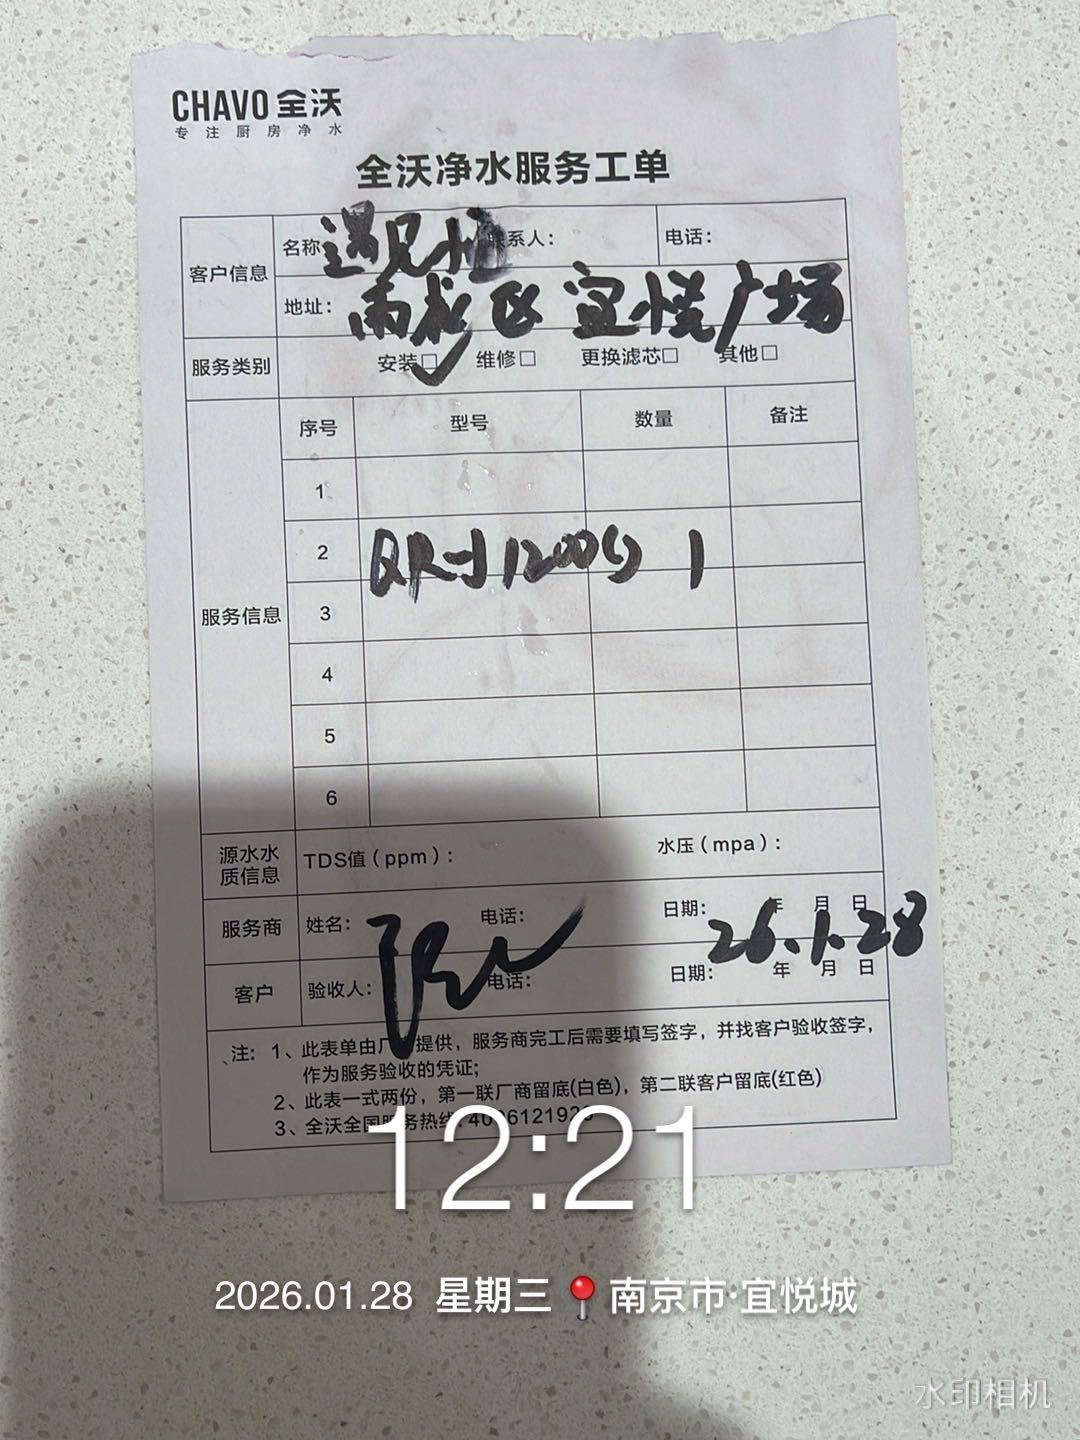 CHAVO 全沃
专注厨房净水
全沃净水服务工单
客户信息 名称 遇见 联系人： 电话：
地址： 雨花区 宜悦广场
服务类别 安装□ ✓ 维修□ 更换滤芯□ 其他□
服务信息 序号 型号 数量 备注
1
2 1
3
4
5
6
源水水质信息 TDS值（ppm）： 水压（mpa）：
服务商 姓名： 电话： 日期： 年 月 日
26.1.28
客户 验收人： 电话： 日期： 年 月 日
注：1、此表单由厂 提供，服务商完工后需要填写签字，并找客户验收签字，
作为服务验收的凭证；
2、此表一式两份，第一联厂商留底(白色)，第二联客户留底(红色)
3、全沃全国服务热线：
12:21
2026.01.28 星期三 📍南京市·宜悦城
水印相机